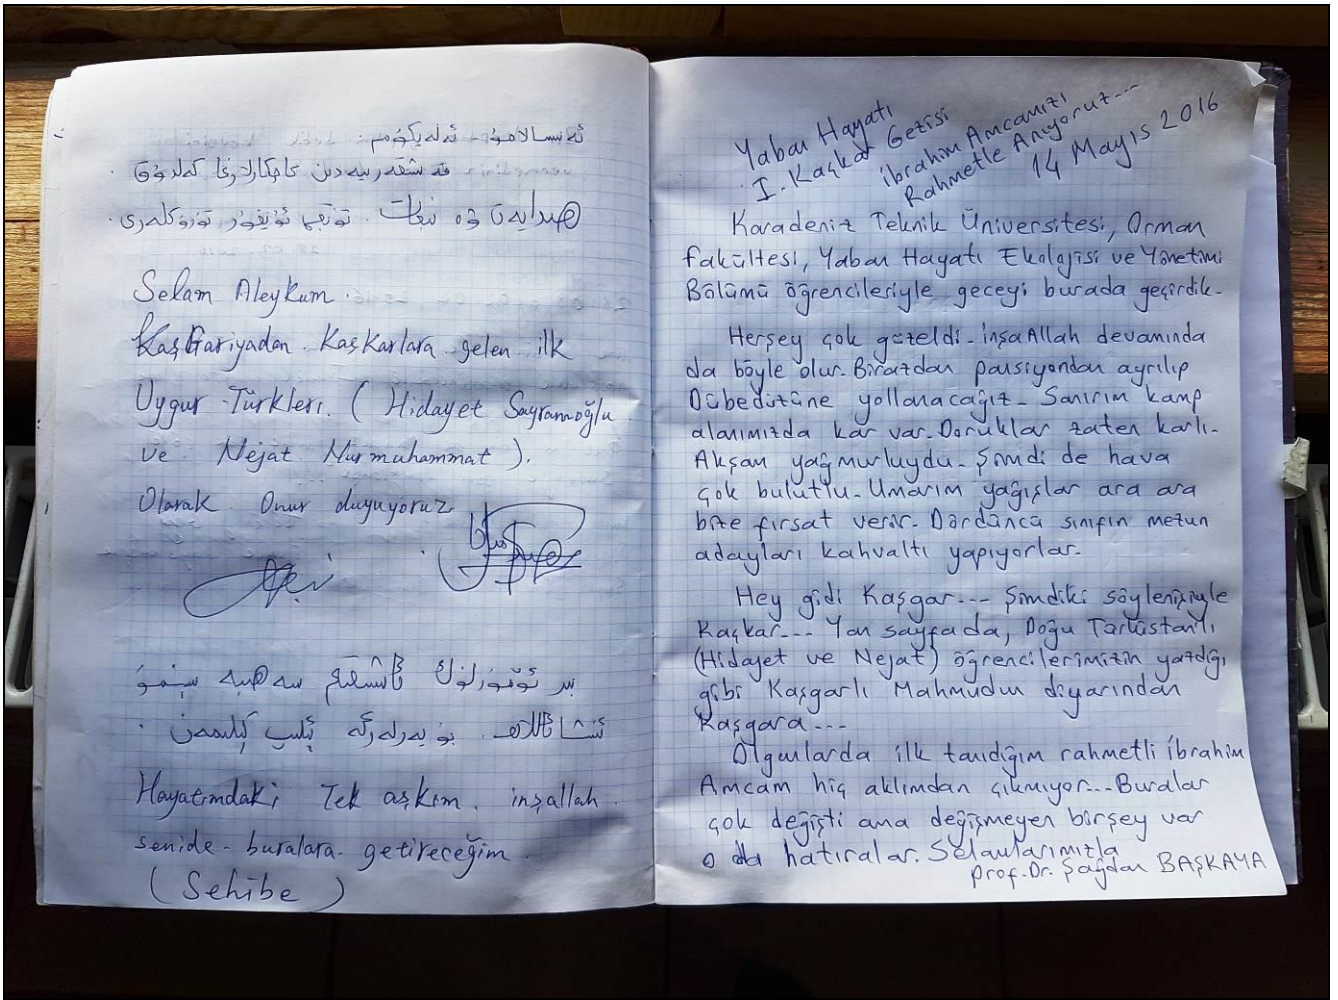 ئەسسالامۇ - ئەلەيكۇم.
قەشقەرىيەدىن كاچكارلارغا كەلدۇق
ھىدايەت ۋە نىجات. تۇنجى ئۇيغۇر تۈركلەرى.
Selam Aleykum.
Kaşgariyadan Kaşkarlara gelen ilk
Uygur Türkleri. ( Hidayet Sayramoğlu
ve Nejat Nurmuhammat ).
Olarak Onur duyuyoruz
بىر ئۆمۈرلۈك ئاشىقىم سەھىبە سېنىمۇ
ئىنشائاللاھ. بۇ يەرلەرگە ئېلىپ كېلىمەن.
Hayatımdaki Tek aşkım. inşallah.
senide - buralara. getireceğim.
( Sehibe )
Yaban Hayatı
I. Kaçkar Gezisi
İbrahim Amcamızı
Rahmetle Anıyoruz---
14 Mayıs 2016
Karadeniz Teknik Üniversitesi, Orman
fakültesi, Yaban Hayatı Ekolojisi ve Yönetimi
Bölümü öğrencileriyle geceyi burada geçirdik-
Herşey çok güzeldi- inşaAllah devamında
da böyle olur. Birazdan pansiyondan ayrılıp
Dübedüzüne yollanacağız- Sanırım kamp
alanımızda kar var. Doruklar zaten karlı-
Akşam yağmurluydu- Şimdi de hava
çok bulutlu- Umarım yağışlar ara ara
bize fırsat verir. Dördüncü sınıfın mezun
adayları kahvaltı yapıyorlar.
Hey gidi Kaşgar--- Şimdiki söylenişiyle
Kaçkar--- Yan sayfada, Doğu Türkistanlı
(Hidayet ve Nejat) öğrencilerimizin yazdığı
gibi Kaşgarlı Mahmudun diyarından
Kaşgara---
Olgunlarda ilk tanıdığım rahmetli İbrahim
Amcam hiç aklımdan çıkmıyor--- Buralar
çok değişti ama değişmeyen birşey var
o da hatıralar. Selamlarımızla
Prof. Dr. Şağdan BAŞKAYA